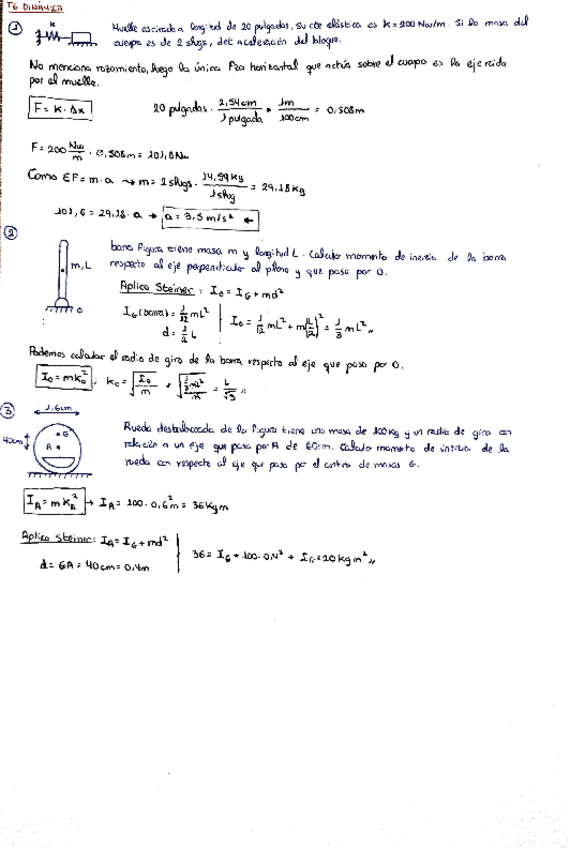 T6 DINÁMICA
① K Muelle estirado a longitud de 20 pulgadas. Su cte elástica es K = 200 Nw/m. Si la masa del
cuerpo es de 2 slugs, det aceleración del bloque.
No menciona rozamiento, luego la única Fza horizontal que actúa sobre el cuerpo es la ejercida
por el muelle.
F = K · Δx 20 pulgadas · 2,54cm / 1 pulgada · 1m / 100cm = 0,508m
F = 200 Nw/m · 0,508m = 101,6 Nw
Como ΣF = m · a → m = 2 slugs · 14,59 Kg / 1 slug = 29,18 Kg
101,6 = 29,18 · a → a = 3,5 m/s² ←
② barra figura tiene masa m y longitud L. Calcula momento de inercia de la barra
m, L respecto al eje perpendicular al plano y que pasa por O.
O
Aplico Steiner: I₀ = I_G + md²
I_G (barra) = 1/12 mL² I₀ = 1/12 mL² + m(L/2)² = 1/3 mL²
d = 1/2 L
Podemos calcular el radio de giro de la barra respecto al eje que pasa por O.
I₀ = mK₀² ; K₀ = √(I₀/m) = √(1/3 mL²/m) = L/√3
③ 1,6m
40cm A G Rueda desbalanceada de la figura tiene una masa de 100 Kg y un radio de giro con
relación a un eje que pasa por A de 60cm. Calcula momento de inercia de la
rueda con respecto al eje que pasa por el centro de masas G.
I_A = m K_A² → I_A = 100 · 0,6² m = 36 Kgm
Aplico Steiner: I_A = I_G + md² 36 = I_G + 100 · 0,4² → I_G = 20 Kg m²
d = GA = 40cm = 0,4m